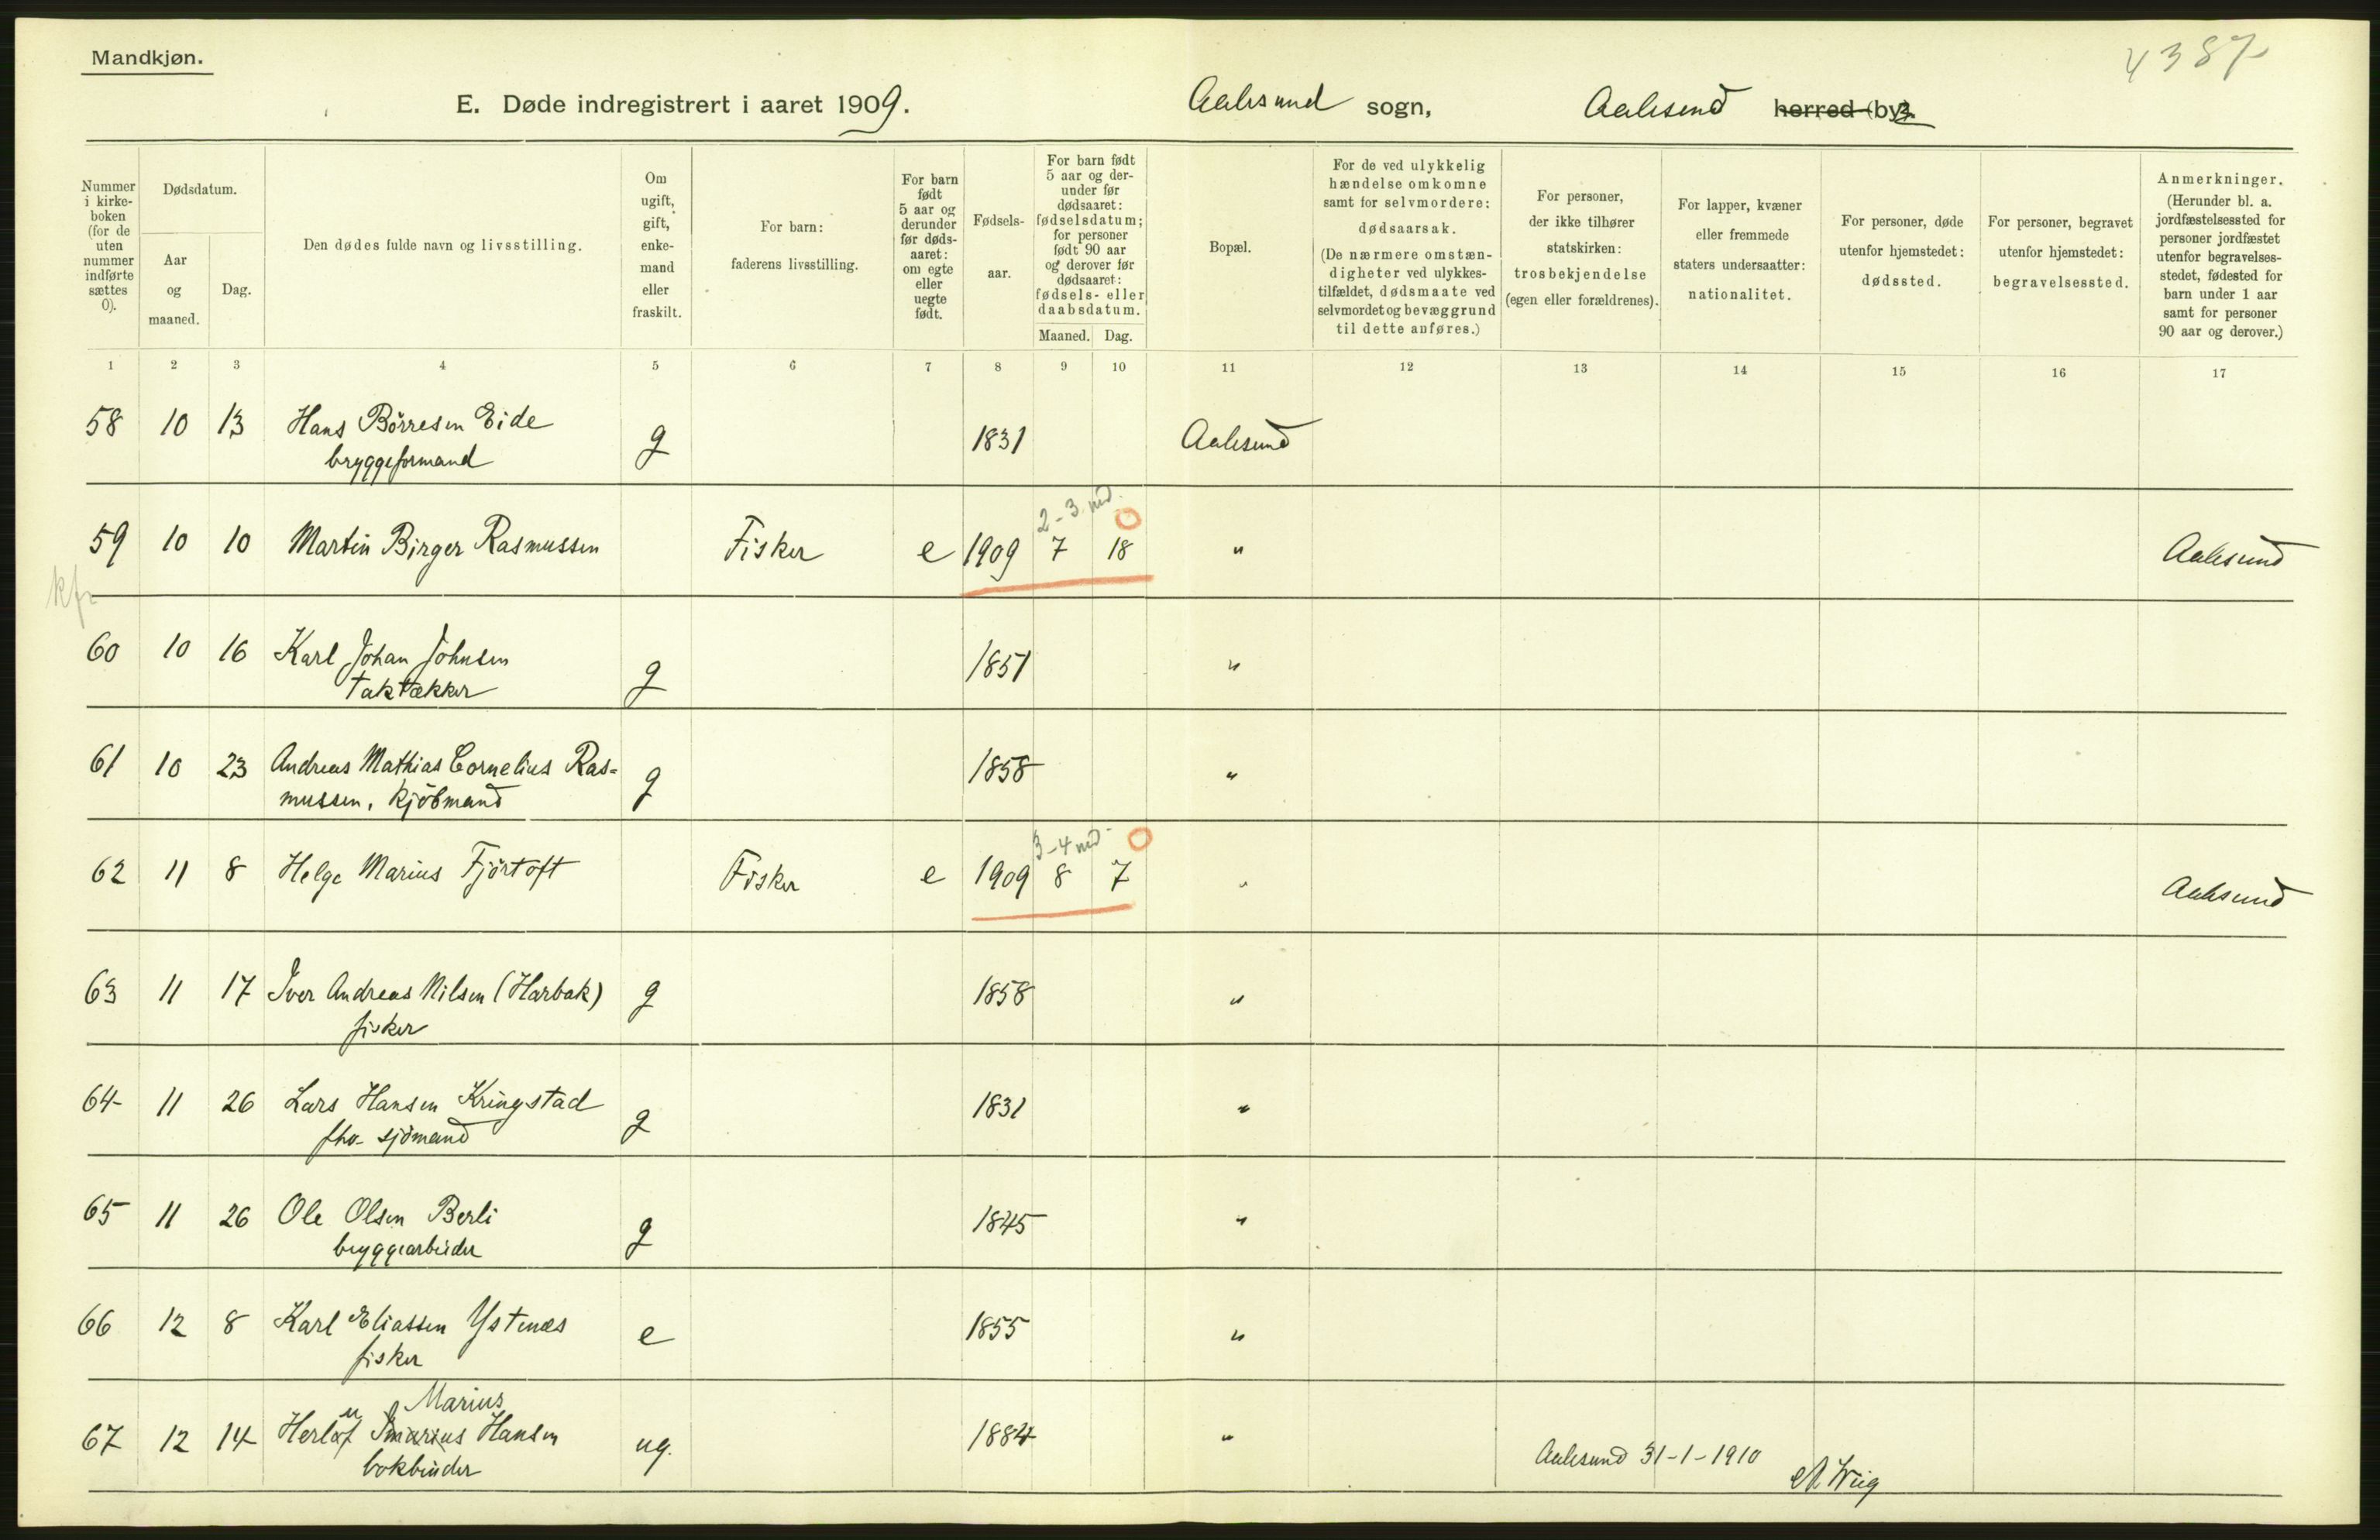 Mandkjøn.
4387
E. Døde indregistrert i aaret 1909.
Aalesund sogn,
Aalesund herred (by).
Nummer i kirkeboken (for de uten nummer indførte sættes 0).
Dødsdatum.
Aar og maaned.
Dag.
Den dødes fulde navn og livsstilling.
Om ugift, gift, enkemand eller fraskilt.
For barn: faderens livsstilling.
For barn født 5 aar og derunder før dødsaaret: om egte eller uegte født.
Fødselsaar.
For barn født 5 aar og derunder før dødsaaret: fødselsdatum; for personer født 90 aar og derover før dødsaaret: fødsels- eller daabsdatum.
Maaned. Dag.
Bopæl.
For de ved ulykkelig hændelse omkomne samt for selvmordere: dødsaarsak. (De nærmere omstændigheter ved ulykkestilfældet, dødsmaate ved selvmordet og bevæggrund til dette anføres.)
For personer, der ikke tilhører statskirken: trosbekjendelse (egen eller forældrenes).
For lapper, kvæner eller fremmede staters undersaatter: nationalitet.
For personer, døde utenfor hjemstedet: dødssted.
For personer, begravet utenfor hjemstedet: begravelsessted.
Anmerkninger. (Herunder bl. a. jordfæstelsessted for personer jordfæstet utenfor begravelsesstedet, fødested for barn under 1 aar samt for personer 90 aar og derover.)
1 2 3 4 5 6 7 8 9 10 11 12 13 14 15 16 17
58 10 13 Hans Börresen Eide g 1831 Aalesund
bryggeformand
2-3 md. O
59 10 10 Martin Birger Rasmussen Fisker e 1909 7 18 " Aalesund
60 10 16 Karl Johan Johnsen g 1851 "
Taktækker
61 10 23 Andreas Mathias Cornelius Ras= g 1858 "
mussen, kjöbmand
3-4 md. O
62 11 8 Helge Marius Fjörtoft Fisker e 1909 8 7 " Aalesund
63 11 17 Iver Andreas Nilsen (Harbak) g 1858 "
fisker
64 11 26 Lars Hansen Kringstad g 1831 "
fhv. sjömand
65 11 26 Ole Olsen Berli g 1845 "
bryggearbeider
66 12 8 Karl Eliassen Ystenæs e 1855 "
fisker
Marius
67 12 14 Herluf Hansen ug. 1884 "
bokbinder
Aalesund 31-1-1910
Wiig